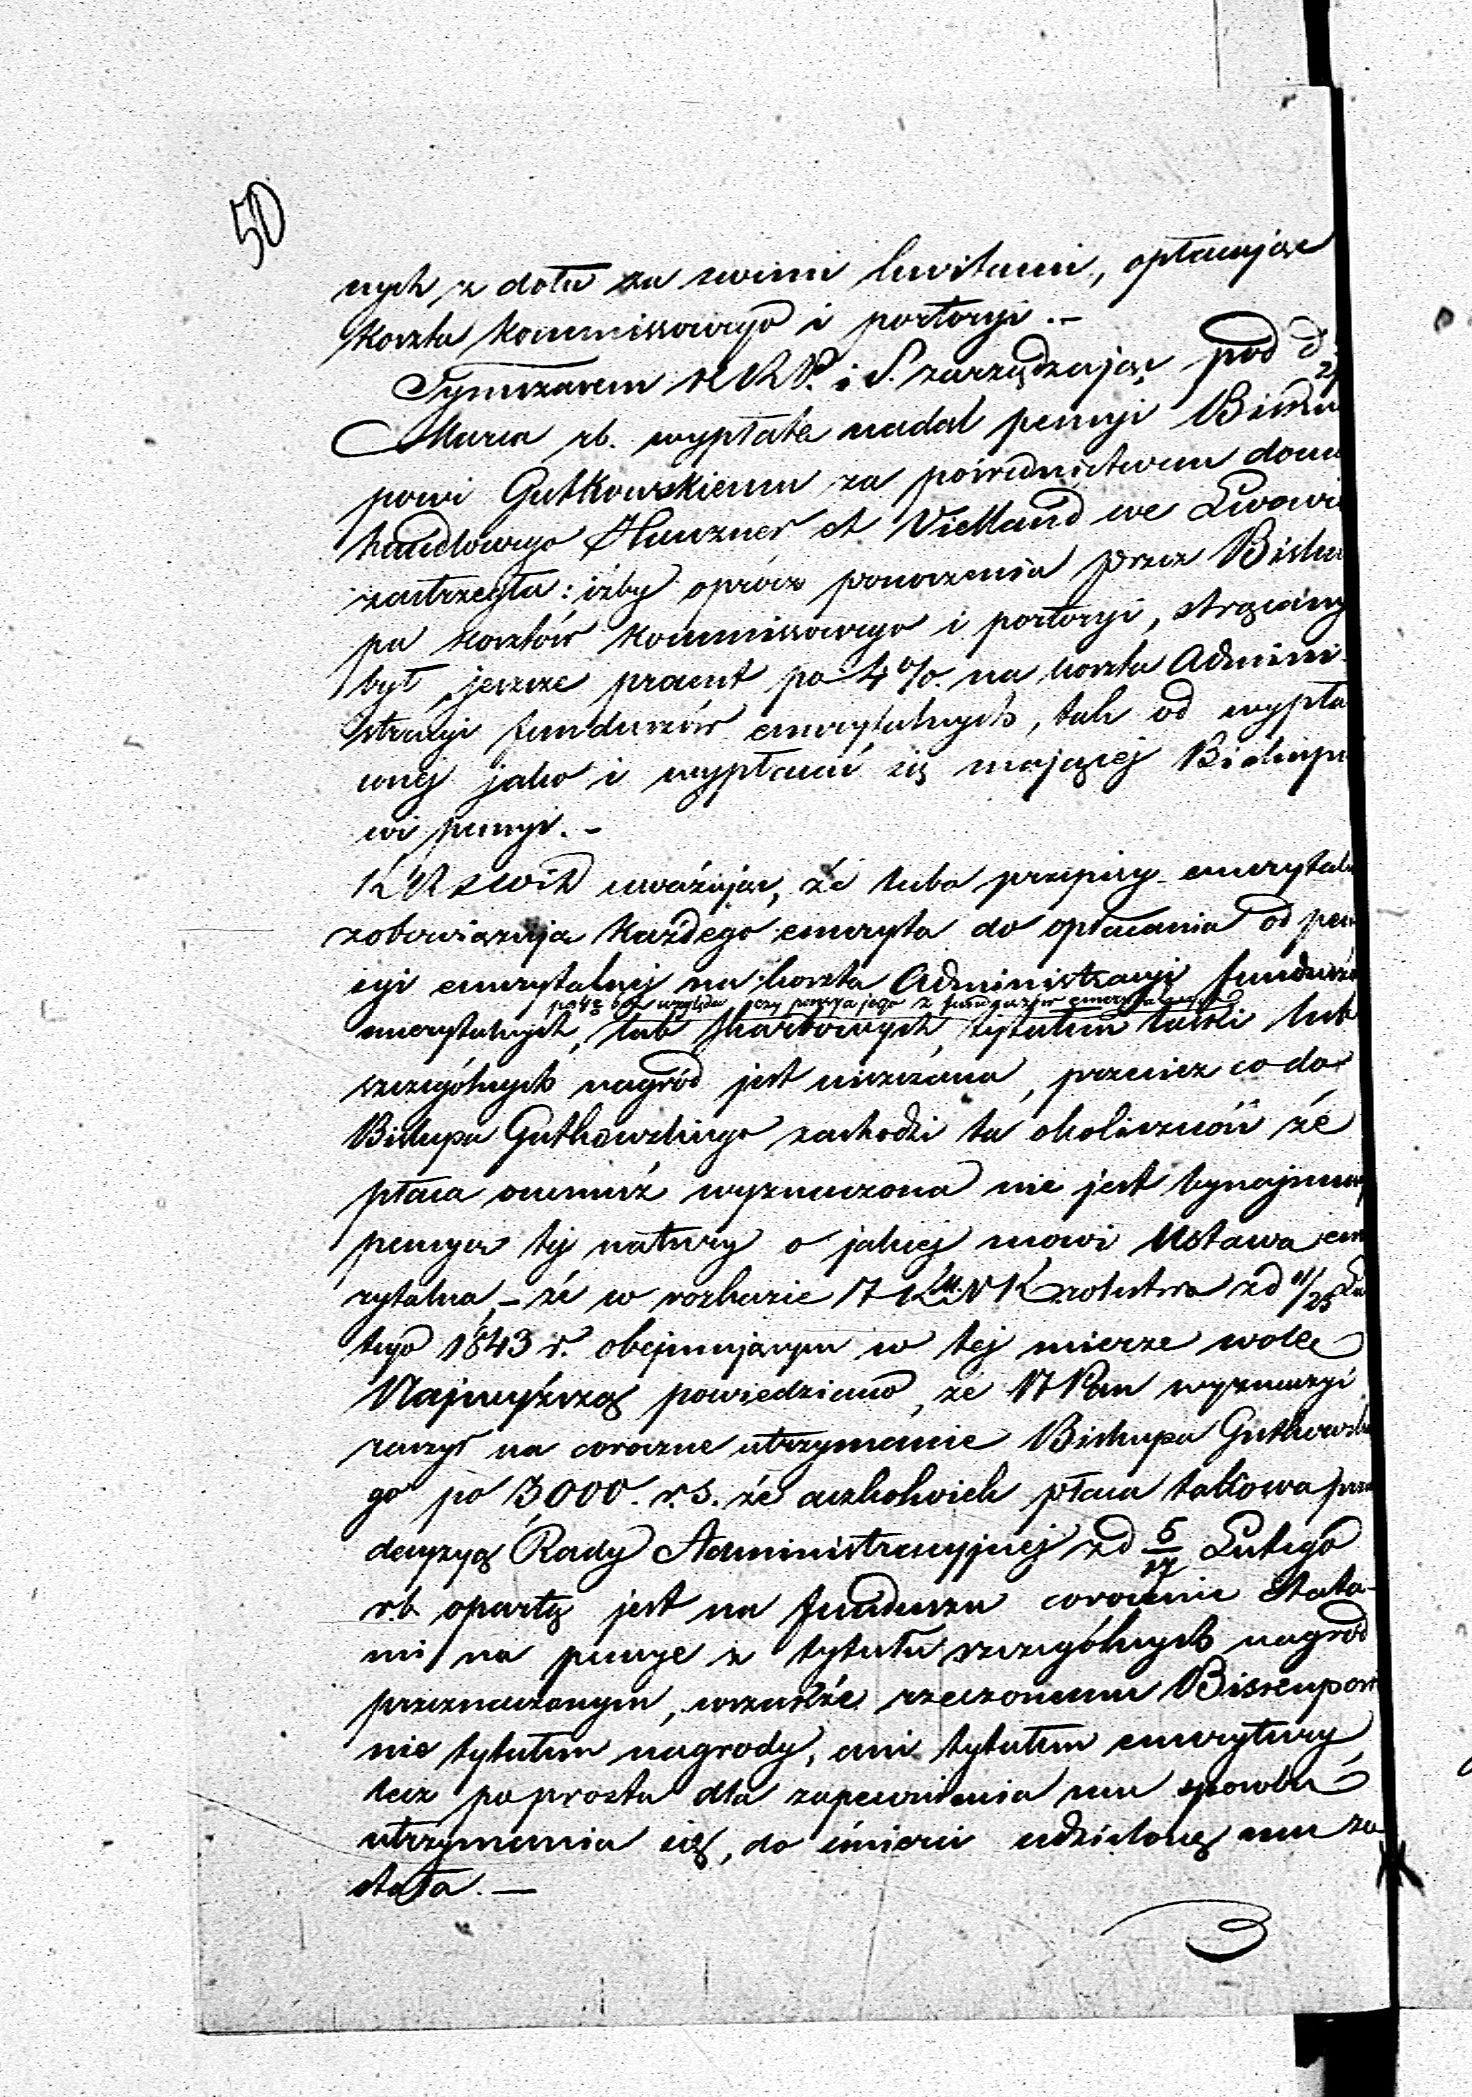 50
nych z dołu za swimi kwitami, opłacając
koszta kommissowego i portoryi.-
Tymczasem K R P. i S. zarządzając pod d
Marca rb. wypłatę nadal pensyi Bisku
powi Gutkowskiemu za pośrednictwem domu
handlowego Hauzner et Vielland we Lwowie
zastrzegła: iżby oprócz ponoszenia przez Bisku
pa kosztów kommissowego i portoryi, strącany
był jeszcze procent po 4% na koszta Admini-
stracyi funduszów emerytalnych, tak od wypła
conej jako i wypłacać się mającej Biskupo
wi pensyi.-
K R uważając, że lubo przepisy emerytalne
zobowiązują każdego emeryta do opłacania od pen
syi emerytalnej na koszta Administracyi funduszów
bez względu czy pensya jego z funduszów emerytalnych
emerytalnych, lub skarbowych, tytułem łaski lub
szczególnych nagród jest uiszczana, przecież co do
Biskupa Gutkowskiego zachodzi ta okoliczność że
płaca onemuż wyznaczona nie jest bynajmniej
pensya tej natury o jakiej mowi Ustawa eme
rytalna,- że w rozkazie Królestwa z d 11/23 Lu
tego 1843 r. obejmującym w tej mierze wolę
Najwyższą powiedziano, że N Pan wyznaczyć
raczył na coroczne utrzymanie Biskupa Gutkowskie
go po 3,000. r.s. że aczkolwiek płaca takowa przez
decyzyą Rady Administracyjnej z d 5/17 Lutego
rb opartą jest na funduszu corocznie etata-
mi na pensye z tytułu szczególnych nagród
przeznaczonym, wszakże rzeczonemu Biskupowi
nie tytułem nagrody, ani tytułem emerytury
lecz po prostu dla zapewnienia mu sposobu
utrzymania się, do śmierci udzieloną mu zo
stała.-